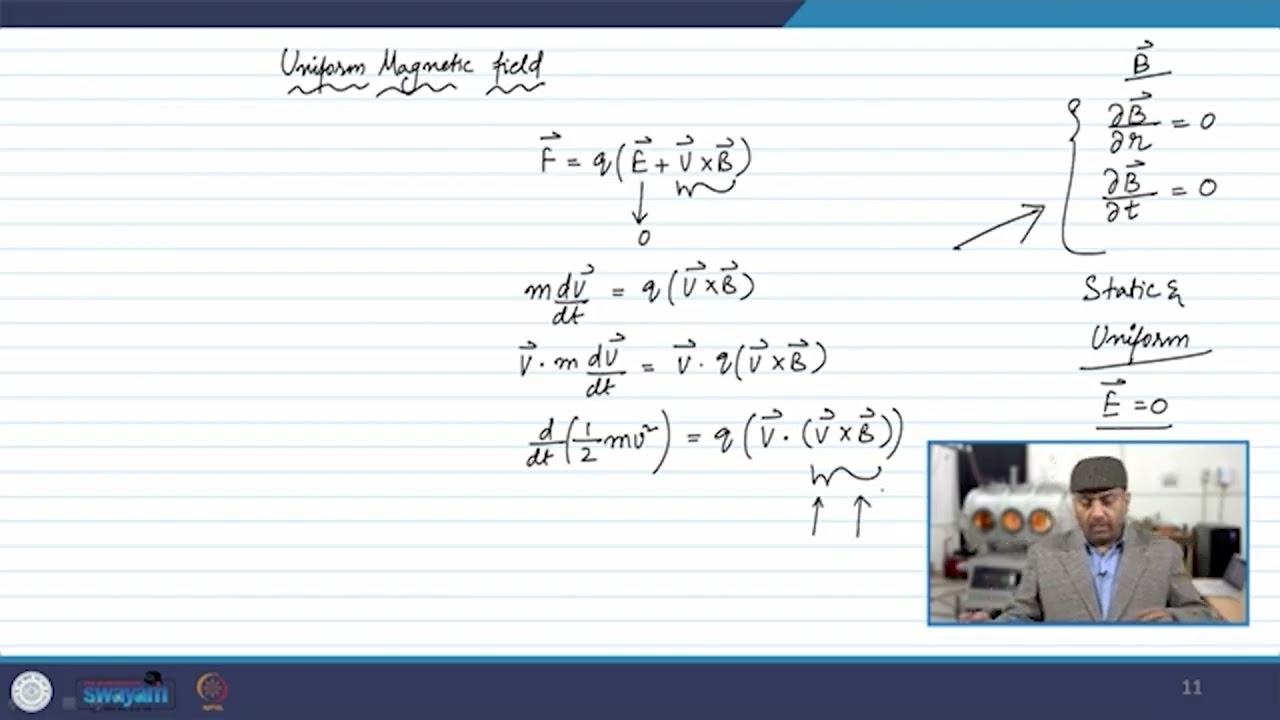 Uniform Magnetic field
F⃗ = q(E⃗ + V⃗ × B⃗)
0
m dV⃗/dt = q(V⃗ × B⃗)
V⃗ · m dV⃗/dt = V⃗ · q(V⃗ × B⃗)
d/dt(1/2 mv²) = q(V⃗ · (V⃗ × B⃗))
B⃗
∂B⃗/∂r = 0
∂B⃗/∂t = 0
Static &
Uniform
E⃗ = 0
swayam
11